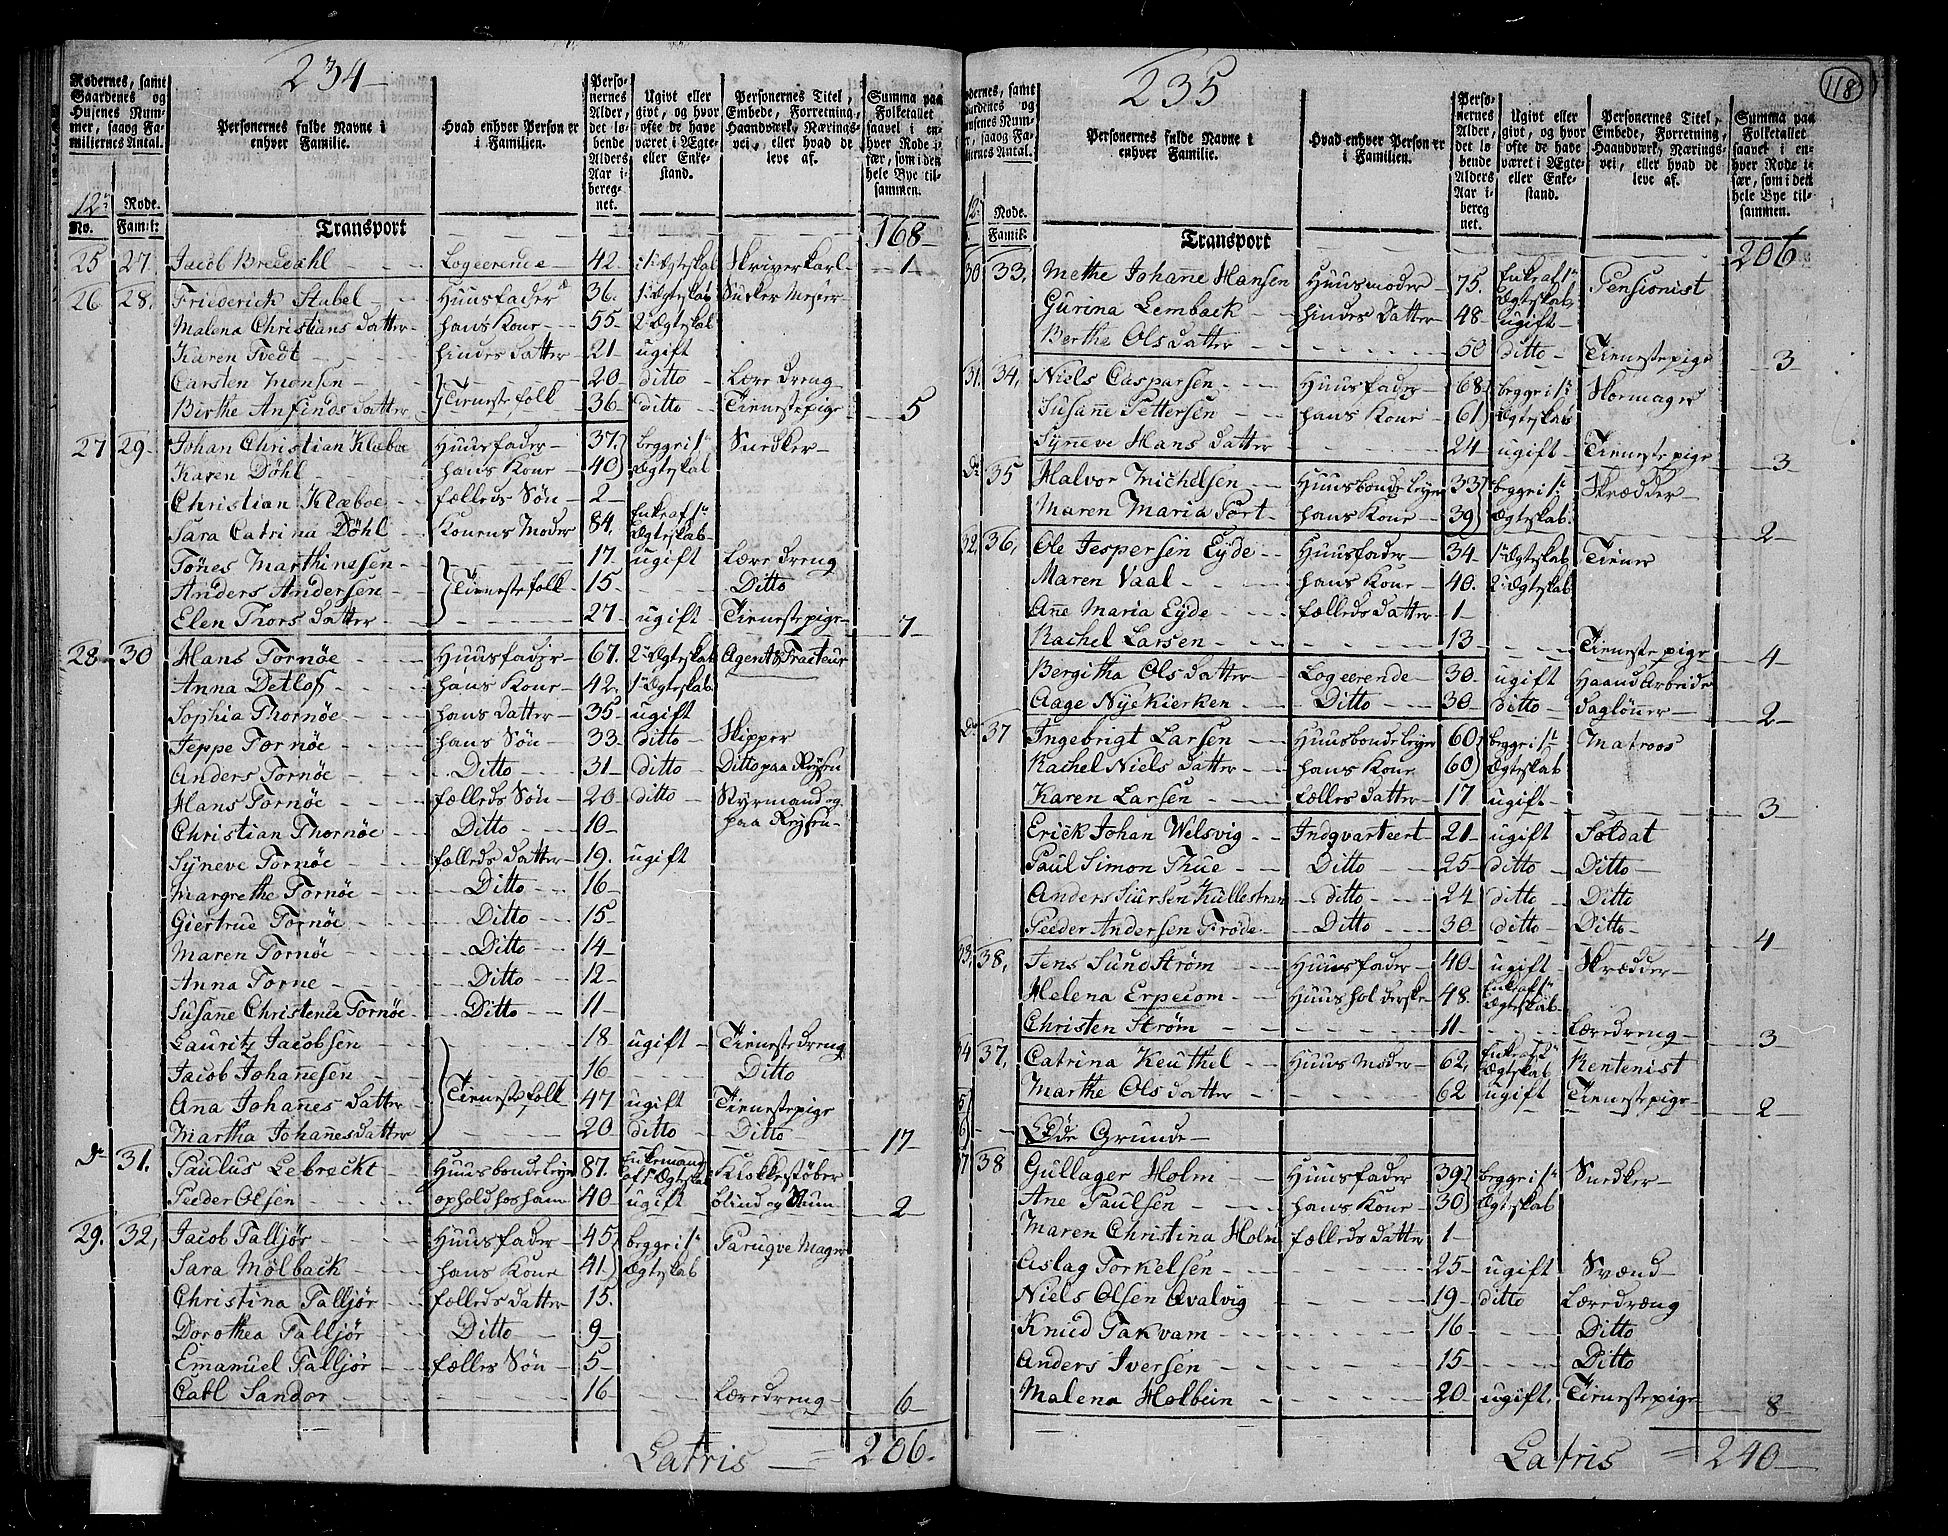 234
Rodernes, samt Gaardenes og Husenes Nummer, saaog Familiernes Antal.
Personernes fulde Navne i enhver Familie.
Hvad enhver Person er i Familien.
Personernes Alder, det løbende Alders Aar iberegnet.
Ugivt eller givt, og hvor ofte de have været i Ægte- eller Enkestand.
Personernes Titel, Embede, Forretning, Haandværk, Næringsvei, eller hvad de leve af.
Summa paa Folketallet saavel i enhver Rode især, som i den hele Bye tilsammen.
12te Rode.
No. Famil:
Transport 168
25 27. Jacob Bredahl Logeerende 42. i 1te Ægteskab Skriverkarl 1
26 28. Friederich Stabel Huusfader 36. 1te Ægteskab
Malena Christians datter hans Kone 55 2 Ægteskab
Karen Tvedt hindes datter 21 ugift
Carsten Monsen Tienestefolk 20 ditto Lære dreng
Birthe Anfinds datter 36 ditto Tienestepige 5
27 29 Johan Christian Klæboe Huusfader 37 begge i 1te Snedker
Karen Döhl hans Kone 40 Ægteskab
Christian Klæboe fælleds Søn 2
Sara Catrina Döhl Konens Moder 84. Enke af 1te Ægteskab
Tönes Marthinesen Tienestefolk 17. ugift Lære dreng
Anders Andersen 15 Ditto
Elen Thors datter 27 ugift Tienestepige 7
28 30 Hans Tornöe Huusfader 67. 2 Ægteskab Agent & Tracteur
Anna Detlof hans Kone 42. 1te Ægteskab
Sophia Thornöe hans datter 35 ugift
Jeppe Tornöe hans Søn 33 ditto Skipper
Anders Tornöe Ditto 31 ditto Ditto paa Reysen
Hans Tornöe fælleds Søn 20 ditto Styrmand og paa Reysen
Christian Thornöe Ditto 10
Syneve Tornöe fælleds datter 19. ugift
Margrethe Tornöe Ditto 16
Giertrue Tornöe Ditto 15
Maren Tornöe Ditto 14
Anna Torne Ditto 12
Susane Christence Tornöe Ditto 11
Lauritz Jacobsen Tienestefolk 18 ugift Tienestedreng
Jacob Johanesen 16 Ditto
Ana Johanes datter 47 ugift Tienestepige
Martha Johanesdatter 20 ditto Ditto 17
Do 31. Paulus Lebrecht Huusbondeleyer 87. Enkemand af 1te Ægteskab Klokkestøber
Peeder Olsen ophold hos ham 40 ugift blind og Stum 2
29. 32, Jacob Falljør Huusfader 45 begge i 1te Paruqve Mager
Sara Mølback hans Kone 41 Ægteskab
Christina Falljør fælleds datter 15.
Dorothea Falljør Ditto 9
Emanuel Falljør fælles Søn 5
Carl Sandor 16 Læredreng 6
Latris = 206.
235
118
Personernes fulde Navne i enhver Familie.
Hvad enhver Person er i Familien.
Personernes Alder, det løbende Alders Aar iberegnet.
Ugivt eller givt, og hvor ofte de have været i Ægte- eller Enkestand.
Personernes Titel, Embede, Forretning, Haandværk, Næringsvei, eller hvad de leve af.
Summa paa Folketallet saavel i enhver Rode især, som i den hele Bye tilsammen.
12 Rode.
Famil.
Transport 206
30 33, Methe Johane Hansen Huusmoder 75. Enke af 1te Ægteskab Pensionist
Gurina Lemback hindes datter 48 ugift
Berthe Olsdatter 50 ditto Tienestepige 3
31. 34, Niels Caspersen Huusfader 68 begge i 1te Skomager
Susane Pettersen hans Kone 61 Ægteskab
Syneve Hans datter 24 ugift Tienestepige 3
Do 35 Halvor Michelsen Huusbondeleyer 33 begge i 1te Skrædder
Maren Maria Fort hans Kone 39 Ægteskab 2
32, 36, Ole Jespersen Eyde Huusfader 34 1te Ægteskab Tiener
Maren Vaal hans Kone 40. 2 Ægteskab
Ane Maria Eyde fælleds datter 1
Rachel Larsen 13 Tienestepige 4
Bergitha Olsdatter Logeerende 30 ugift Haand Arbeide
Aage Nyekierken Ditto 30 ditto dagløner 2
Do 37 Ingebrigt Larsen Huusbondeleyer 60 begge i 1te Matroos
Rachel Niels datter hans Kone 60 Ægteskab
Karen Larsen fælles datter 17 ugift 3
Erick Johan Welsvig Indqvarteert 21 ugift Soldat
Paul Simon Thue Ditto 25 ditto Ditto
Anders Siursen Kullestrun ditto 24 ditto Ditto
Peeder Andersen Frode Ditto 30 ditto Ditto 4
33, 38, Jens Sundström Huusfader 40 ugift Skrædder
Helena Erpecom Huusholderske 48 Enke af 1te Ægteskab
Christen Ström 11 Læredreng 3
34 37, Catrina Keuthel Huus Moder 62, Enke af 2 Ægteskab Rentenist
Marthe Ols datter 62 ugift Tienestepige 2
5
6 Øde Grunde
7 38 Gullager Holm Huusfader 39 begge i 1te Snedker
Ane Paulsen hans Kone 30 Ægteskab
Maren Christina Holm fælleds datter 1
Aslag Torkelsen 25 ugift Svænd
Niels Olsen Qvalvig 19 ditto Læredræng
Knud Takvam 16 Ditto
Anders Iversen 15 Ditto
Malena Holbein 20 ugift Tienestepige 8
Latris = 240